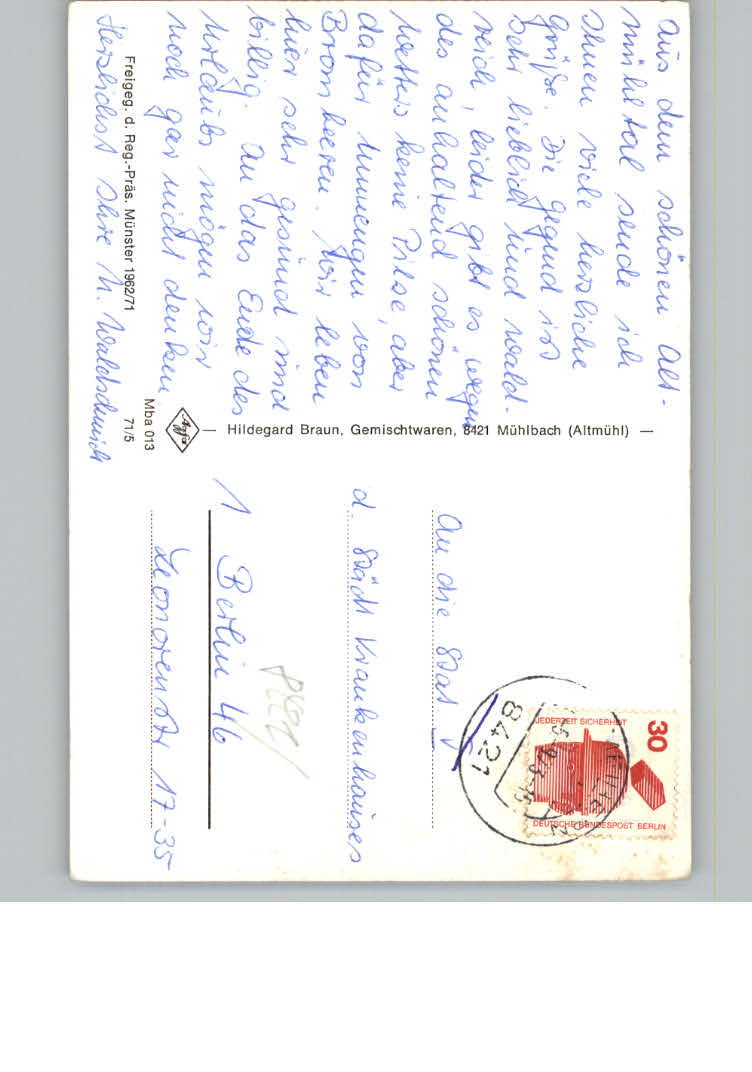 Aus dem schönen Alt-
mühltal sende ich
Ihnen viele herzliche
Grüße. Die Gegend ist
sehr lieblich und wald-
reich, leider gibt es wegen
des anhaltend schönen
Wetters keine Pilse, aber
dafür Unmengen von
Brombeeren. Wir leben
hier sehr gesund und
billig. An das Ende des
Urlaubs mögen wir
noch gar nicht denken
Herzlichst Ihre
Freigeg. d. Reg.-Präs. Münster 1962/71
71/5
Mba 013
Agfa
— Hildegard Braun, Gemischtwaren, 8421 Mühlbach (Altmühl) —
An die Stat V
d. Städt Krankenhauses
1 Berlin 46
Leonorenstr 17-35
30
JEDERZEIT SICHERHEIT
DEUTSCHE BUNDESPOST BERLIN
8421